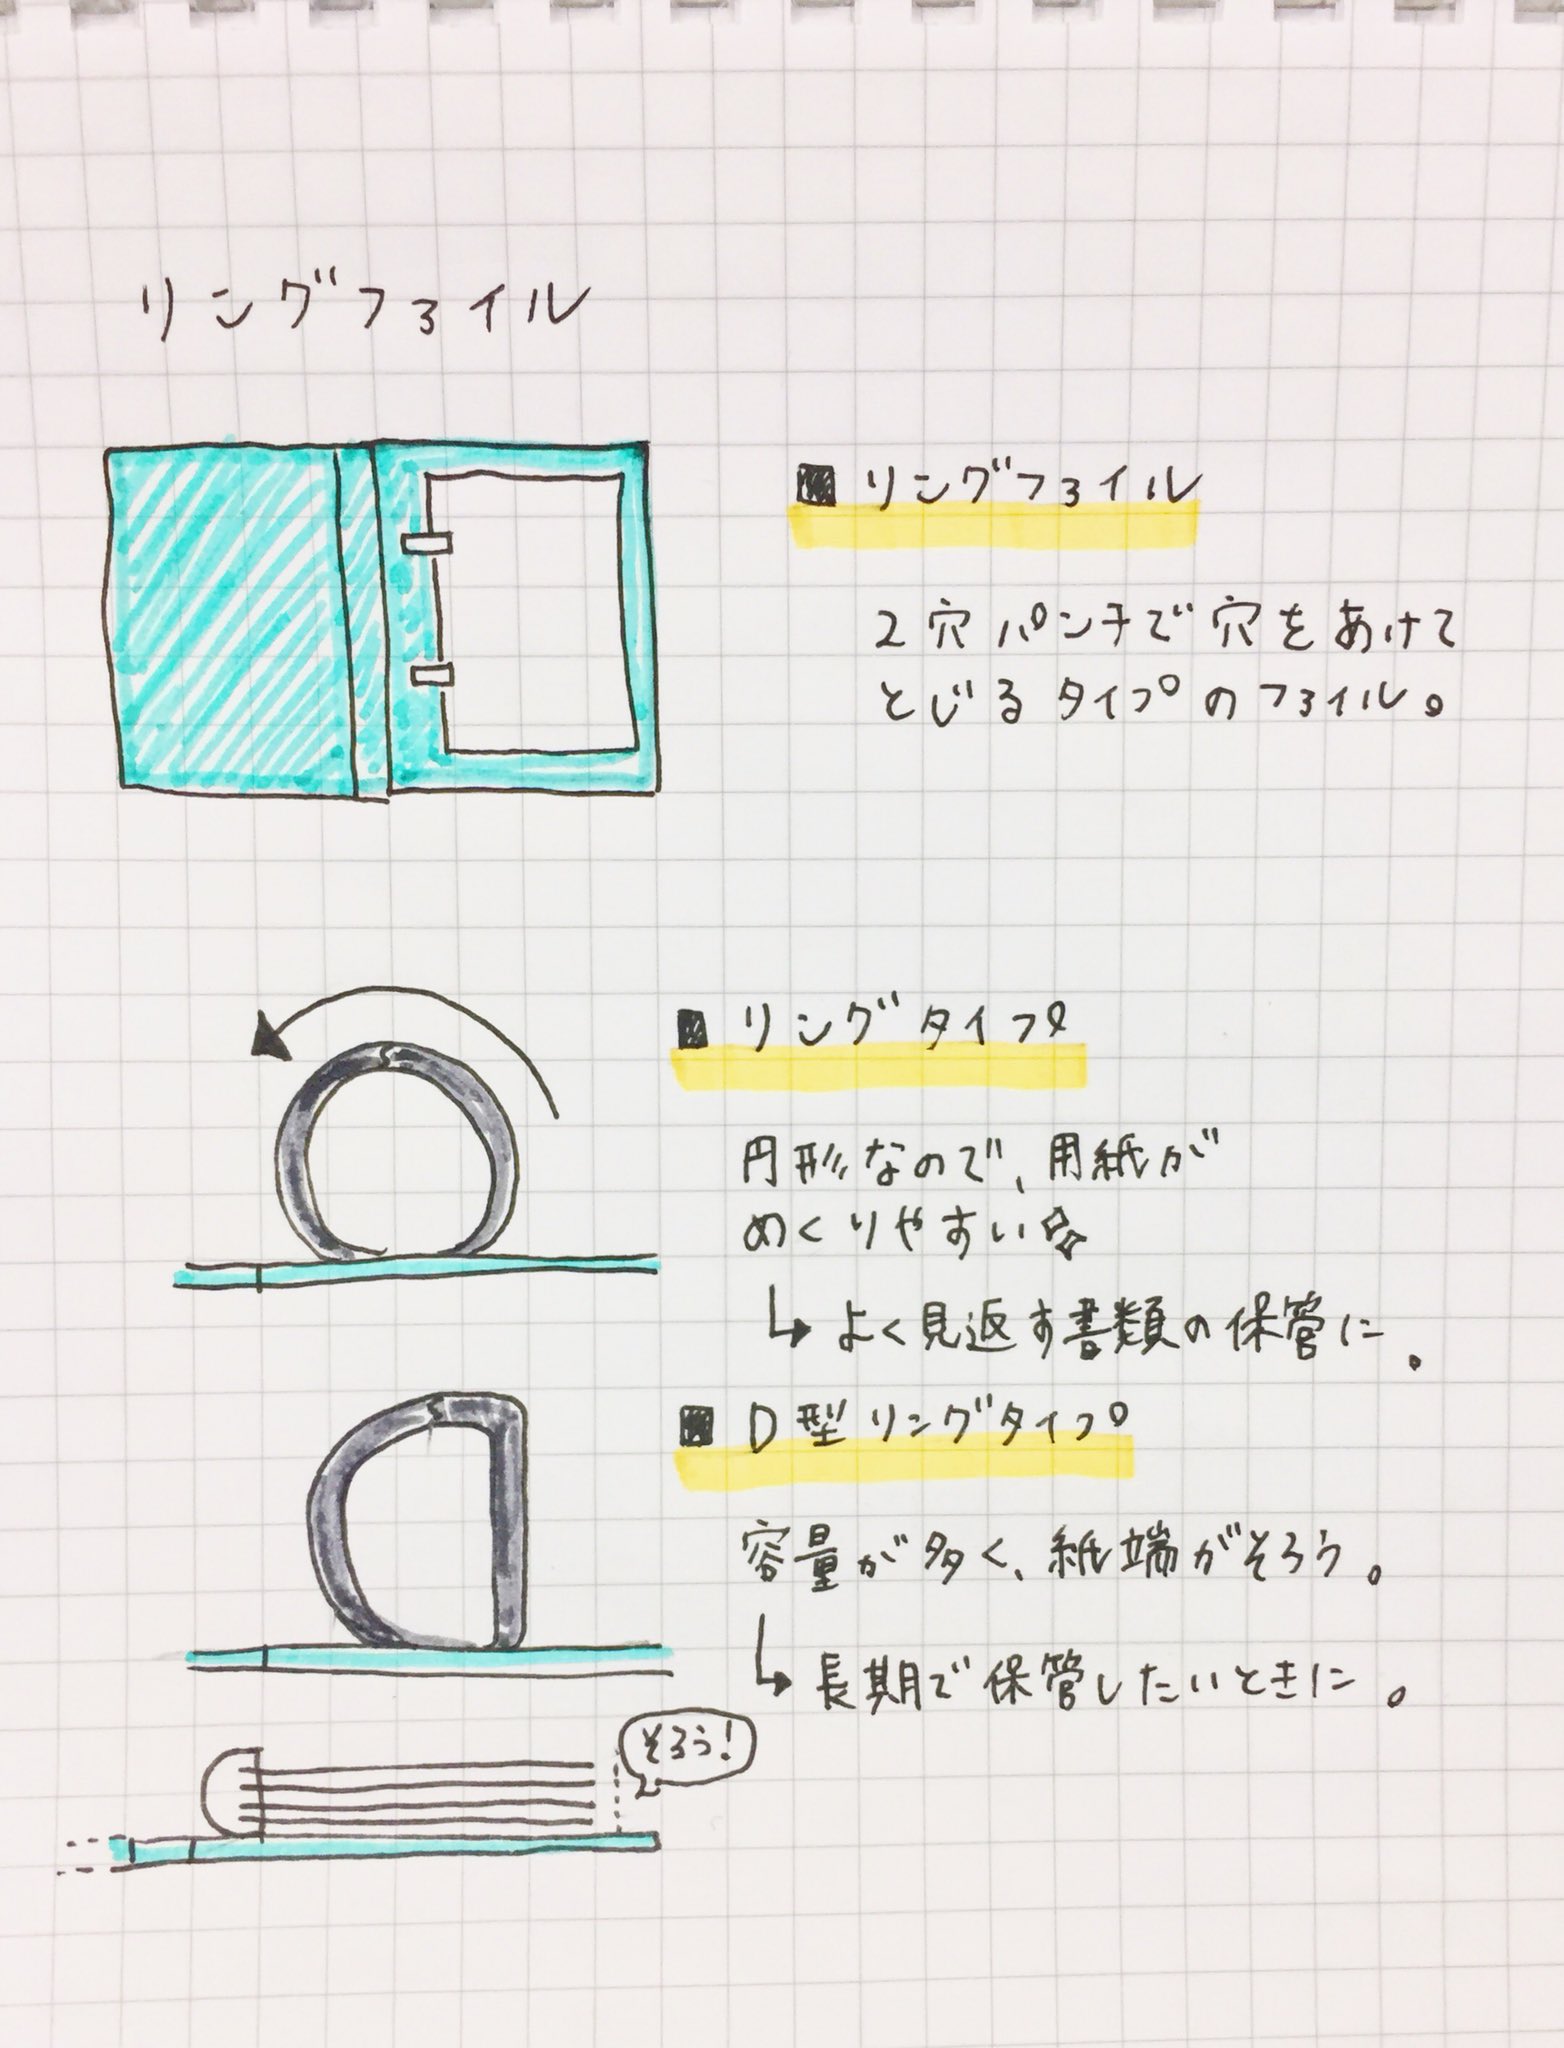 リングファイル
■ リングファイル
2穴パンチで穴をあけて
とじるタイプのファイル。
■ リングタイプ
円形なので、用紙が
めくりやすい
↳ よく見返す書類の保管に。
■ D型リングタイプ
容量が多く、紙端がそろう。
↳ 長期で保管したいときに。
そろう!